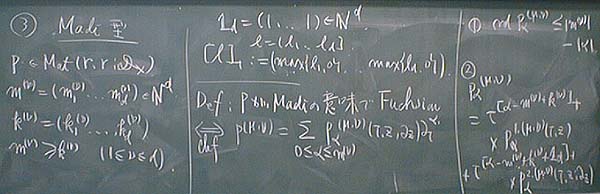 ③ Madi 型
P ∈ Mat(r, r; 𝒟_X)
m^(ν) = (m_1^(ν) ... m_d^(ν)) ∈ N^d
k^(ν) = (k_1^(ν) ... k_d^(ν))
m^(ν) ≥ k^(ν) (1≤ν≤
1_d = (1, ... 1) ∈ N^d
l = (l_1 ... l_d)
[l]_+ := (max{l_1, 0}, ... max{l_d, 0})
Def: P Madi の意味で Fuchsian
⇔ def P^(μ,ν) = Σ_{0≤α≤m^(ν)} P_α^(μ,ν)(τ, z, ∂_z) ∂_τ^α
① ord P_α^(μ,ν) ≤ |m^(ν)|
- |α|
② P_α^(μ,ν)
= τ^[α-m^(ν)+k^(ν)]_+
× P_α^1,(μ,ν)(τ, z)
+ τ^[α-m^(ν)+k^(ν)+1_d]_+
× P_α^2,(μ,ν)(τ, z, ∂_z)